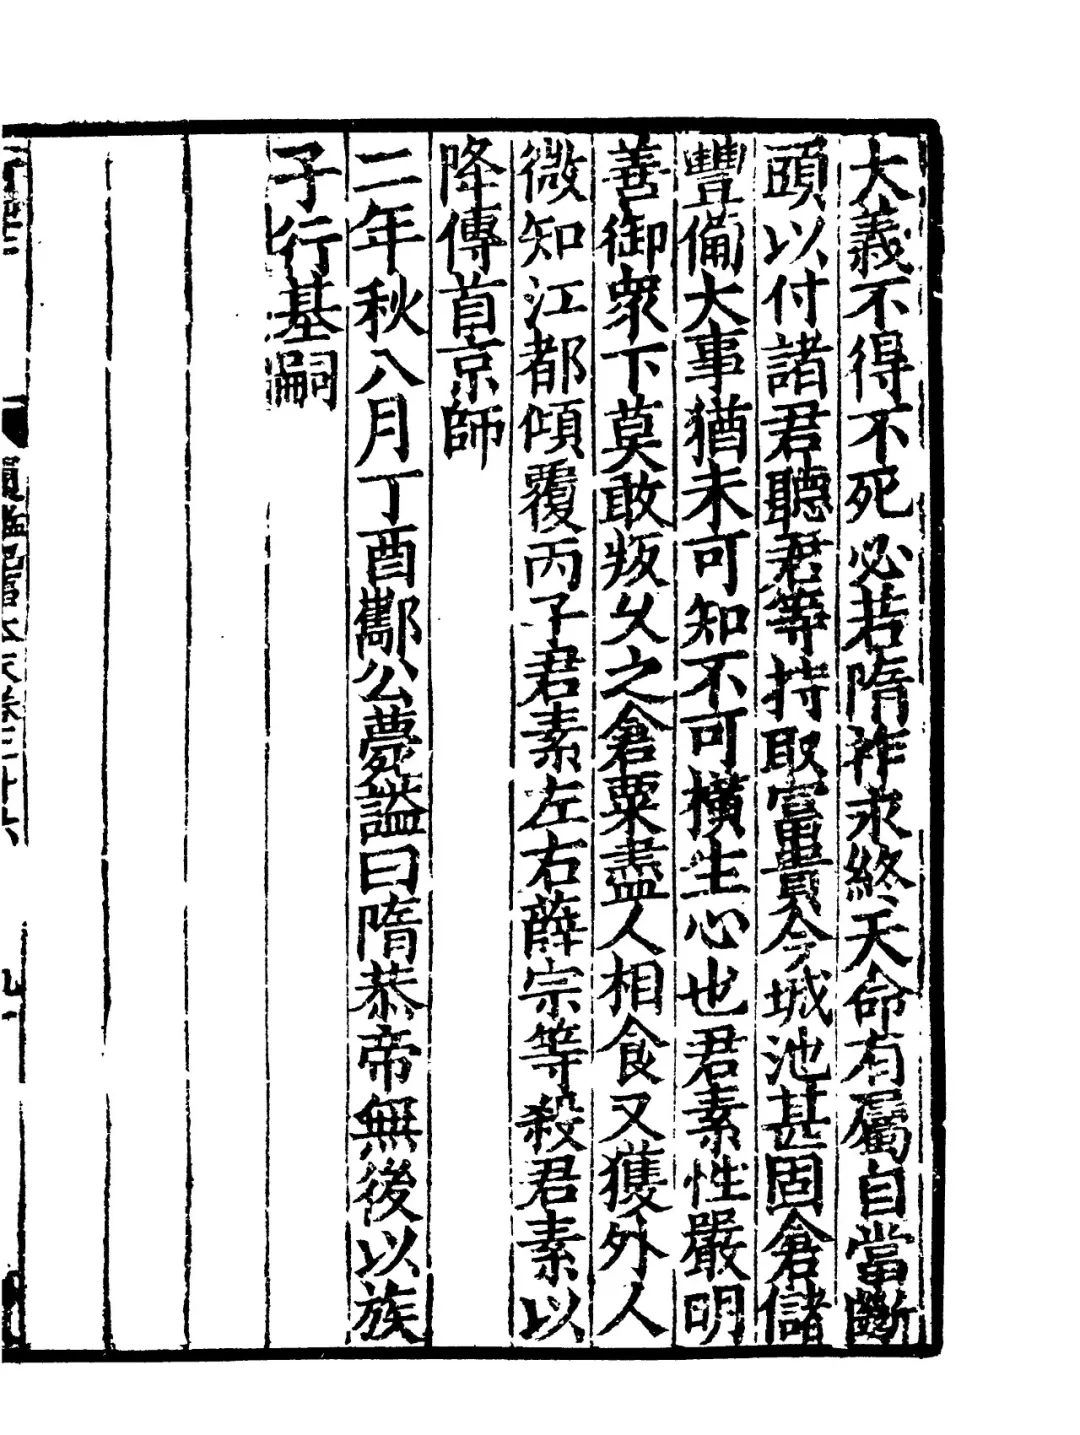 大義不得不死必若隋祚永終天命有屬自當斷
頭以付諸君聽君等持取富貴今城池甚固倉儲
豐備大事猶未可知不可橫生心也君素性嚴明
善御衆下莫敢叛久之倉粟盡人相食又獲外人
微知江都傾覆丙子君素左右薛宗等殺君素以
降傳首京師
二年秋八月丁酉酅公薨謚曰隋恭帝無後以族
子行基嗣